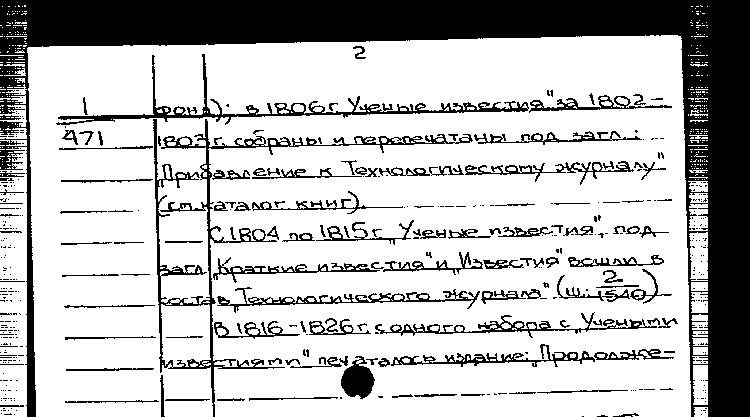 2
1
471
фонд); в 1806 г. „Ученые известия" за 1802-
1803 г. собраны и перепечатаны под загл.:
„Прибавление к Технологическому журналу"
(см. каталог книг).
С 1804 по 1815 г. „Ученые известия", под
загл. „Краткие известия" и „Известия" вошли в
состав „Технологического журнала" (ш: 2/1540)
В 1816-1826 г. с одного набора с „Учеными
известиями" печаталось издание: „Продолже-